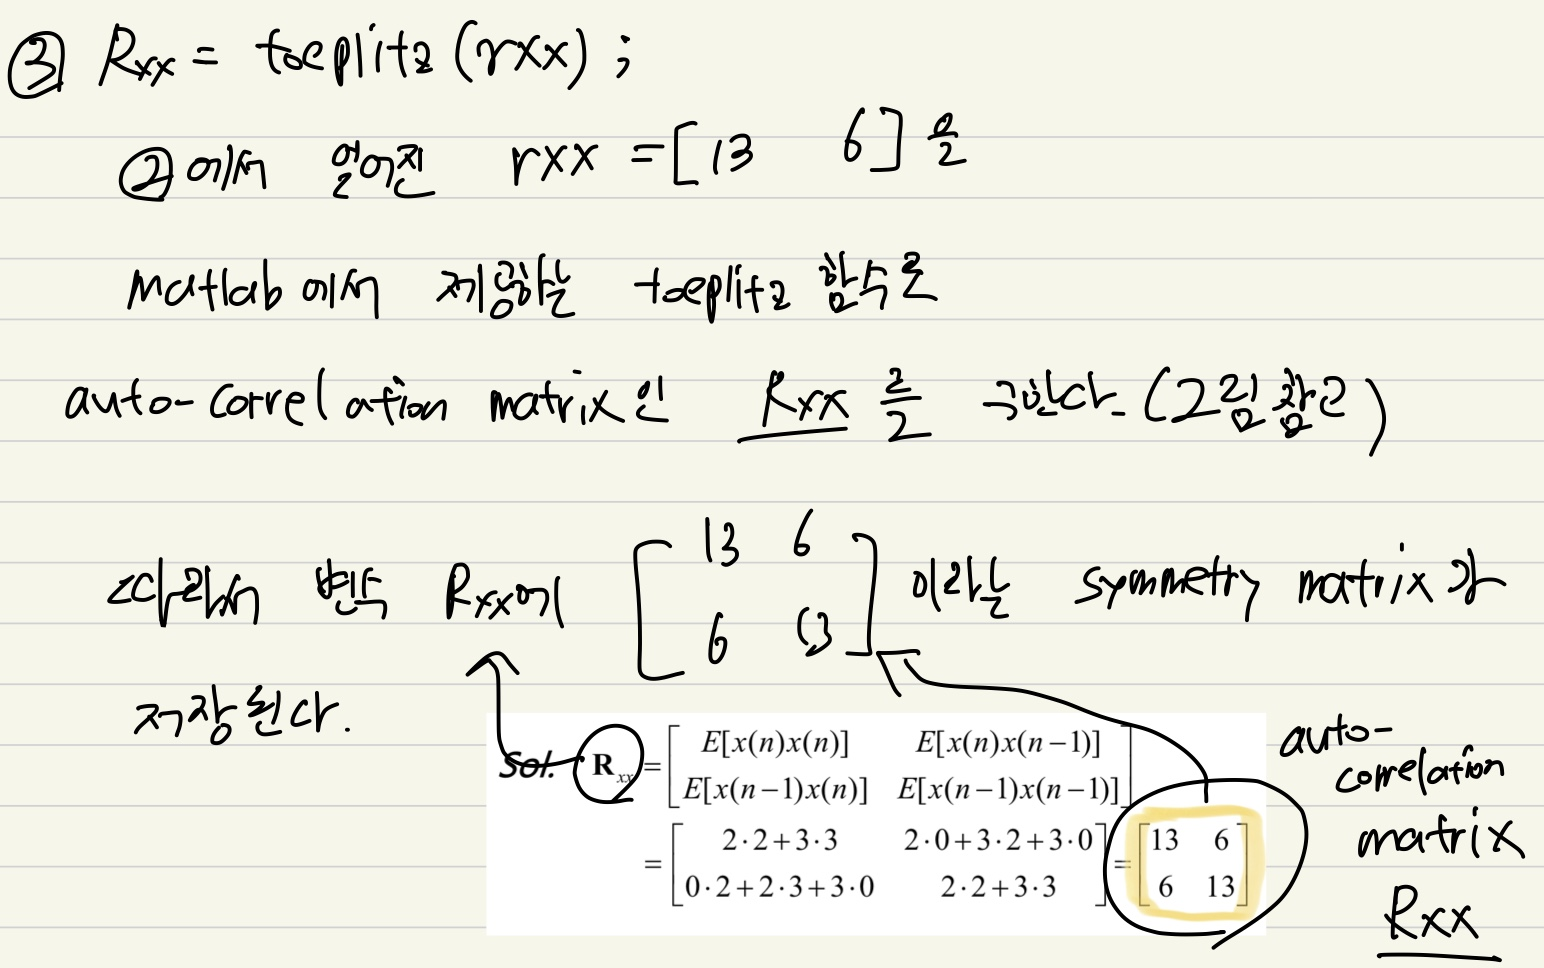 ③ Rxx = toeplitz(rxx);
②에서 얻어진 rxx = [13 6]을
Matlab에서 제공하는 toeplitz 함수로
auto-correlation matrix인 Rxx를 구한다. (그림 참고)
따라서 변수 Rxx에 [13 6
6 13] 이라는 symmetry matrix가
저장된다.
Sol. R_xx = [E[x(n)x(n)] E[x(n)x(n−1)]
E[x(n−1)x(n)] E[x(n−1)x(n−1)]]
= [2·2+3·3 2·0+3·2+3·0
0·2+2·3+3·0 2·2+3·3] = [13 6
6 13]
auto-
correlation
matrix
Rxx